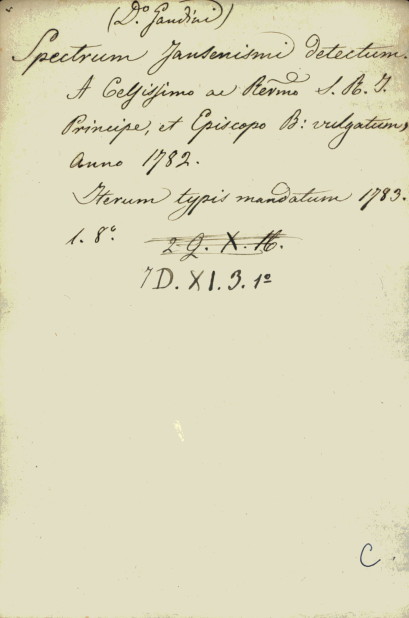 (Do. Gaudini)
Spectrum Jansenismi detectum.
A Celsissimo ac Revmo S. R. I.
Principe, et Episcopo B: vulgatum,
Anno 1782.
Iterum typis mandatum 1783.
1. 8o.
7D. XI. 3. 1o
C.